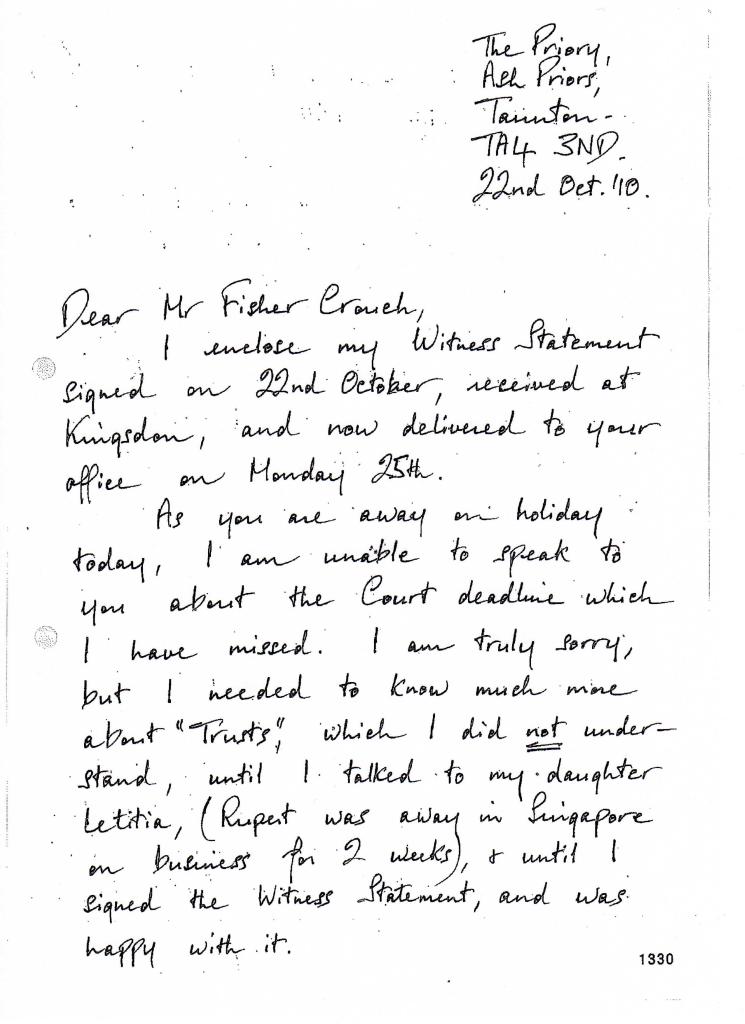 The Priory,
Ash Priors,
Taunton-
TA4 3ND.
22nd Oct. '10.
Dear Mr Fisher Crouch,
I enclose my Witness Statement
signed on 22nd October, received at
Kingsdon, and now delivered to your
office on Monday 25th.
As you are away on holiday
today, I am unable to speak to
you about the Court deadline which
I have missed. I am truly sorry,
but I needed to know much more
about "Trusts", which I did not under-
stand, until I talked to my daughter
Letitia, (Rupert was away in Singapore
on business for 2 weeks), & until I
signed the Witness Statement, and was
happy with it.
1330